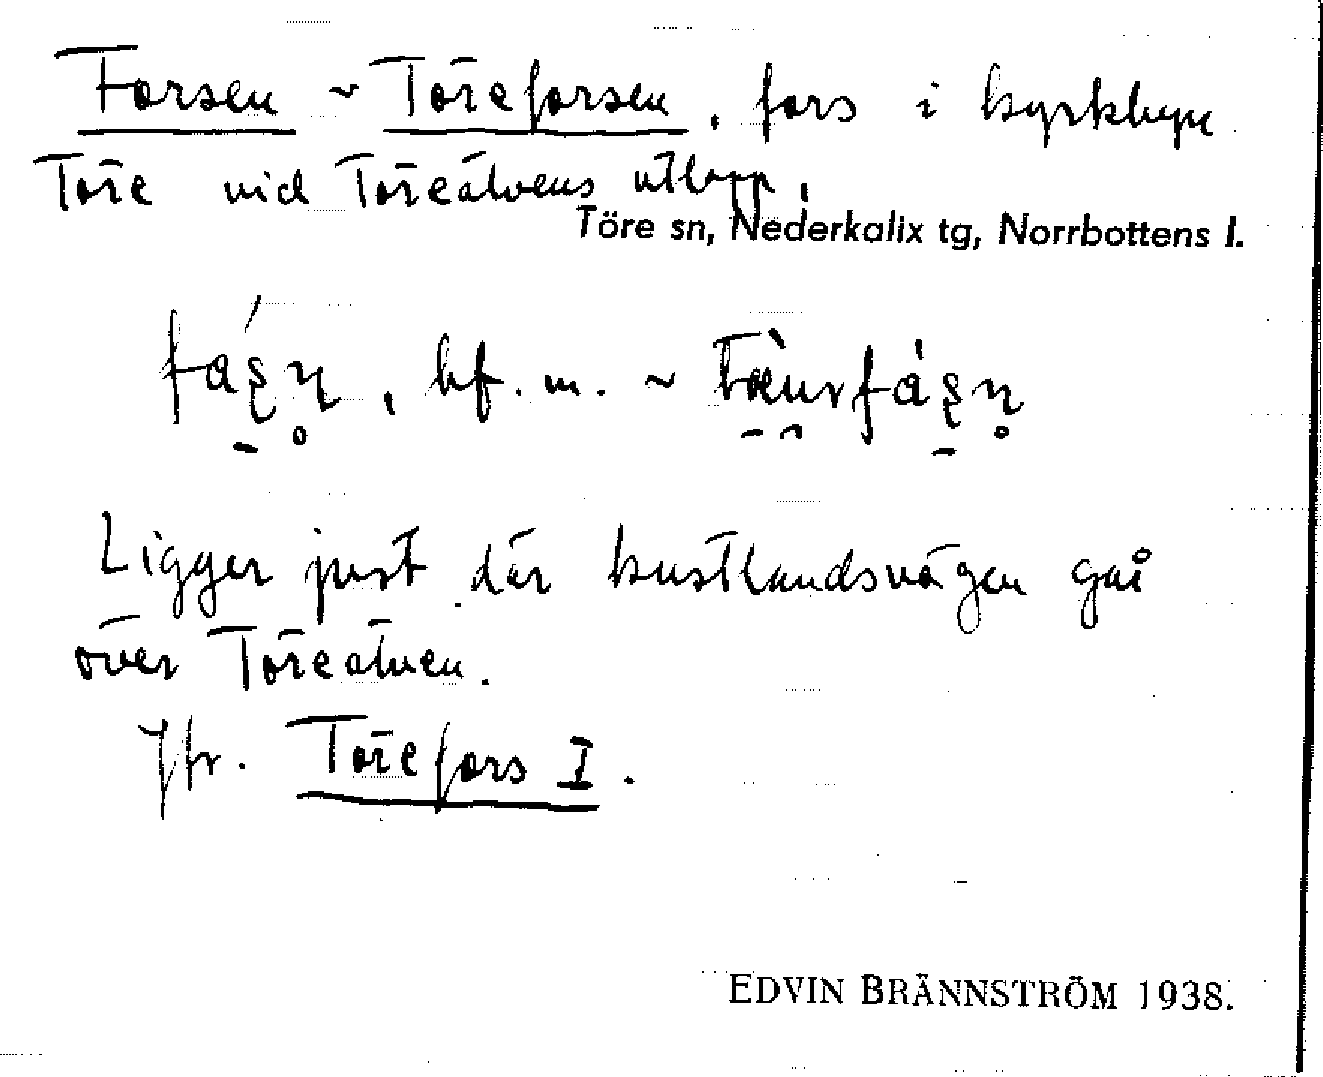 Forsen ~ Töreforsen, fors i kyrkbyn
Töre vid Töreälvens utlopp,
Töre sn, Nederkalix tg, Norrbottens l.
, bf. m. ~
Ligger just där kustlandsvägen går
över Töreälven.
Jfr. Törefors I.
EDVIN BRÄNNSTRÖM 1938.